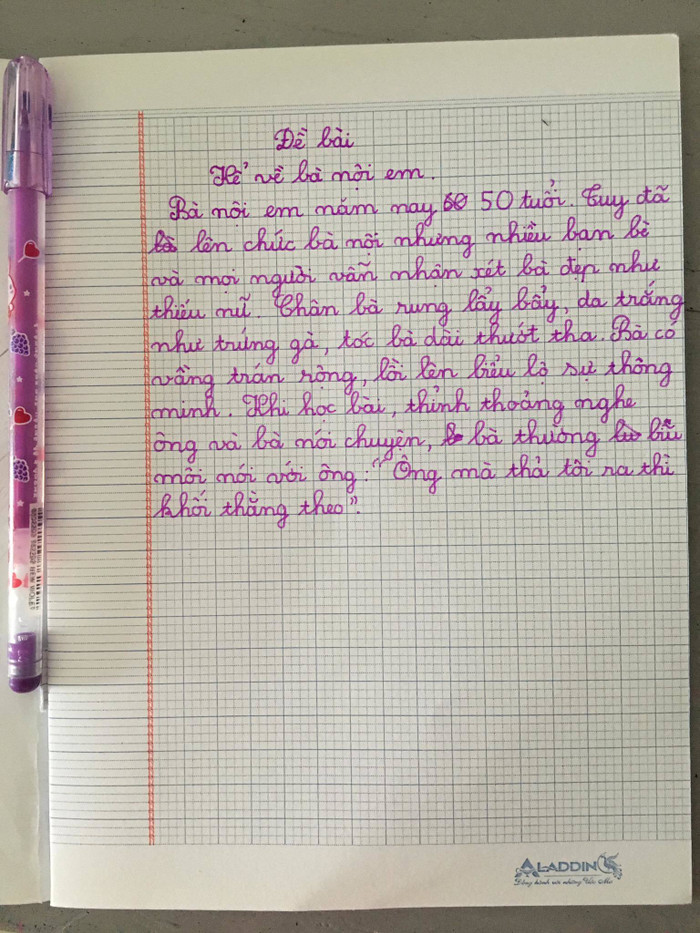 Đề bài
Kể về bà nội em.
Bà nội em năm nay 60 50 tuổi. Tuy đã
là lên chức bà nội nhưng nhiều bạn bè
và mọi người vẫn nhận xét bà đẹp như
thiếu nữ. Chân bà rung lẩy bẩy, da trắng
như trứng gà, tóc bà dài thướt tha. Bà có
vầng trán rộng, lồi lên biểu lộ sự thông
minh. Khi học bài, thỉnh thoảng nghe
ông và bà nói chuyện, bà thường bĩu
môi nói với ông: "Ông mà thả tôi ra thì
khối thằng theo".
ALADDIN
Đồng hành với những Ước Mơ